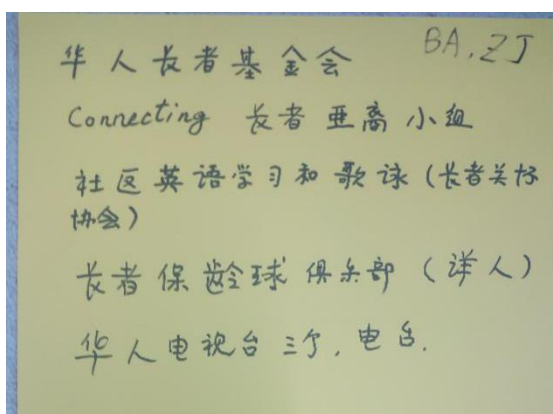 BA, ZJ
华人长者基金会
Connecting 长者亚裔小组
社区英语学习和歌咏(长者关怀
协会)
长者保龄球俱乐部(洋人)
华人电视台三个,电台.